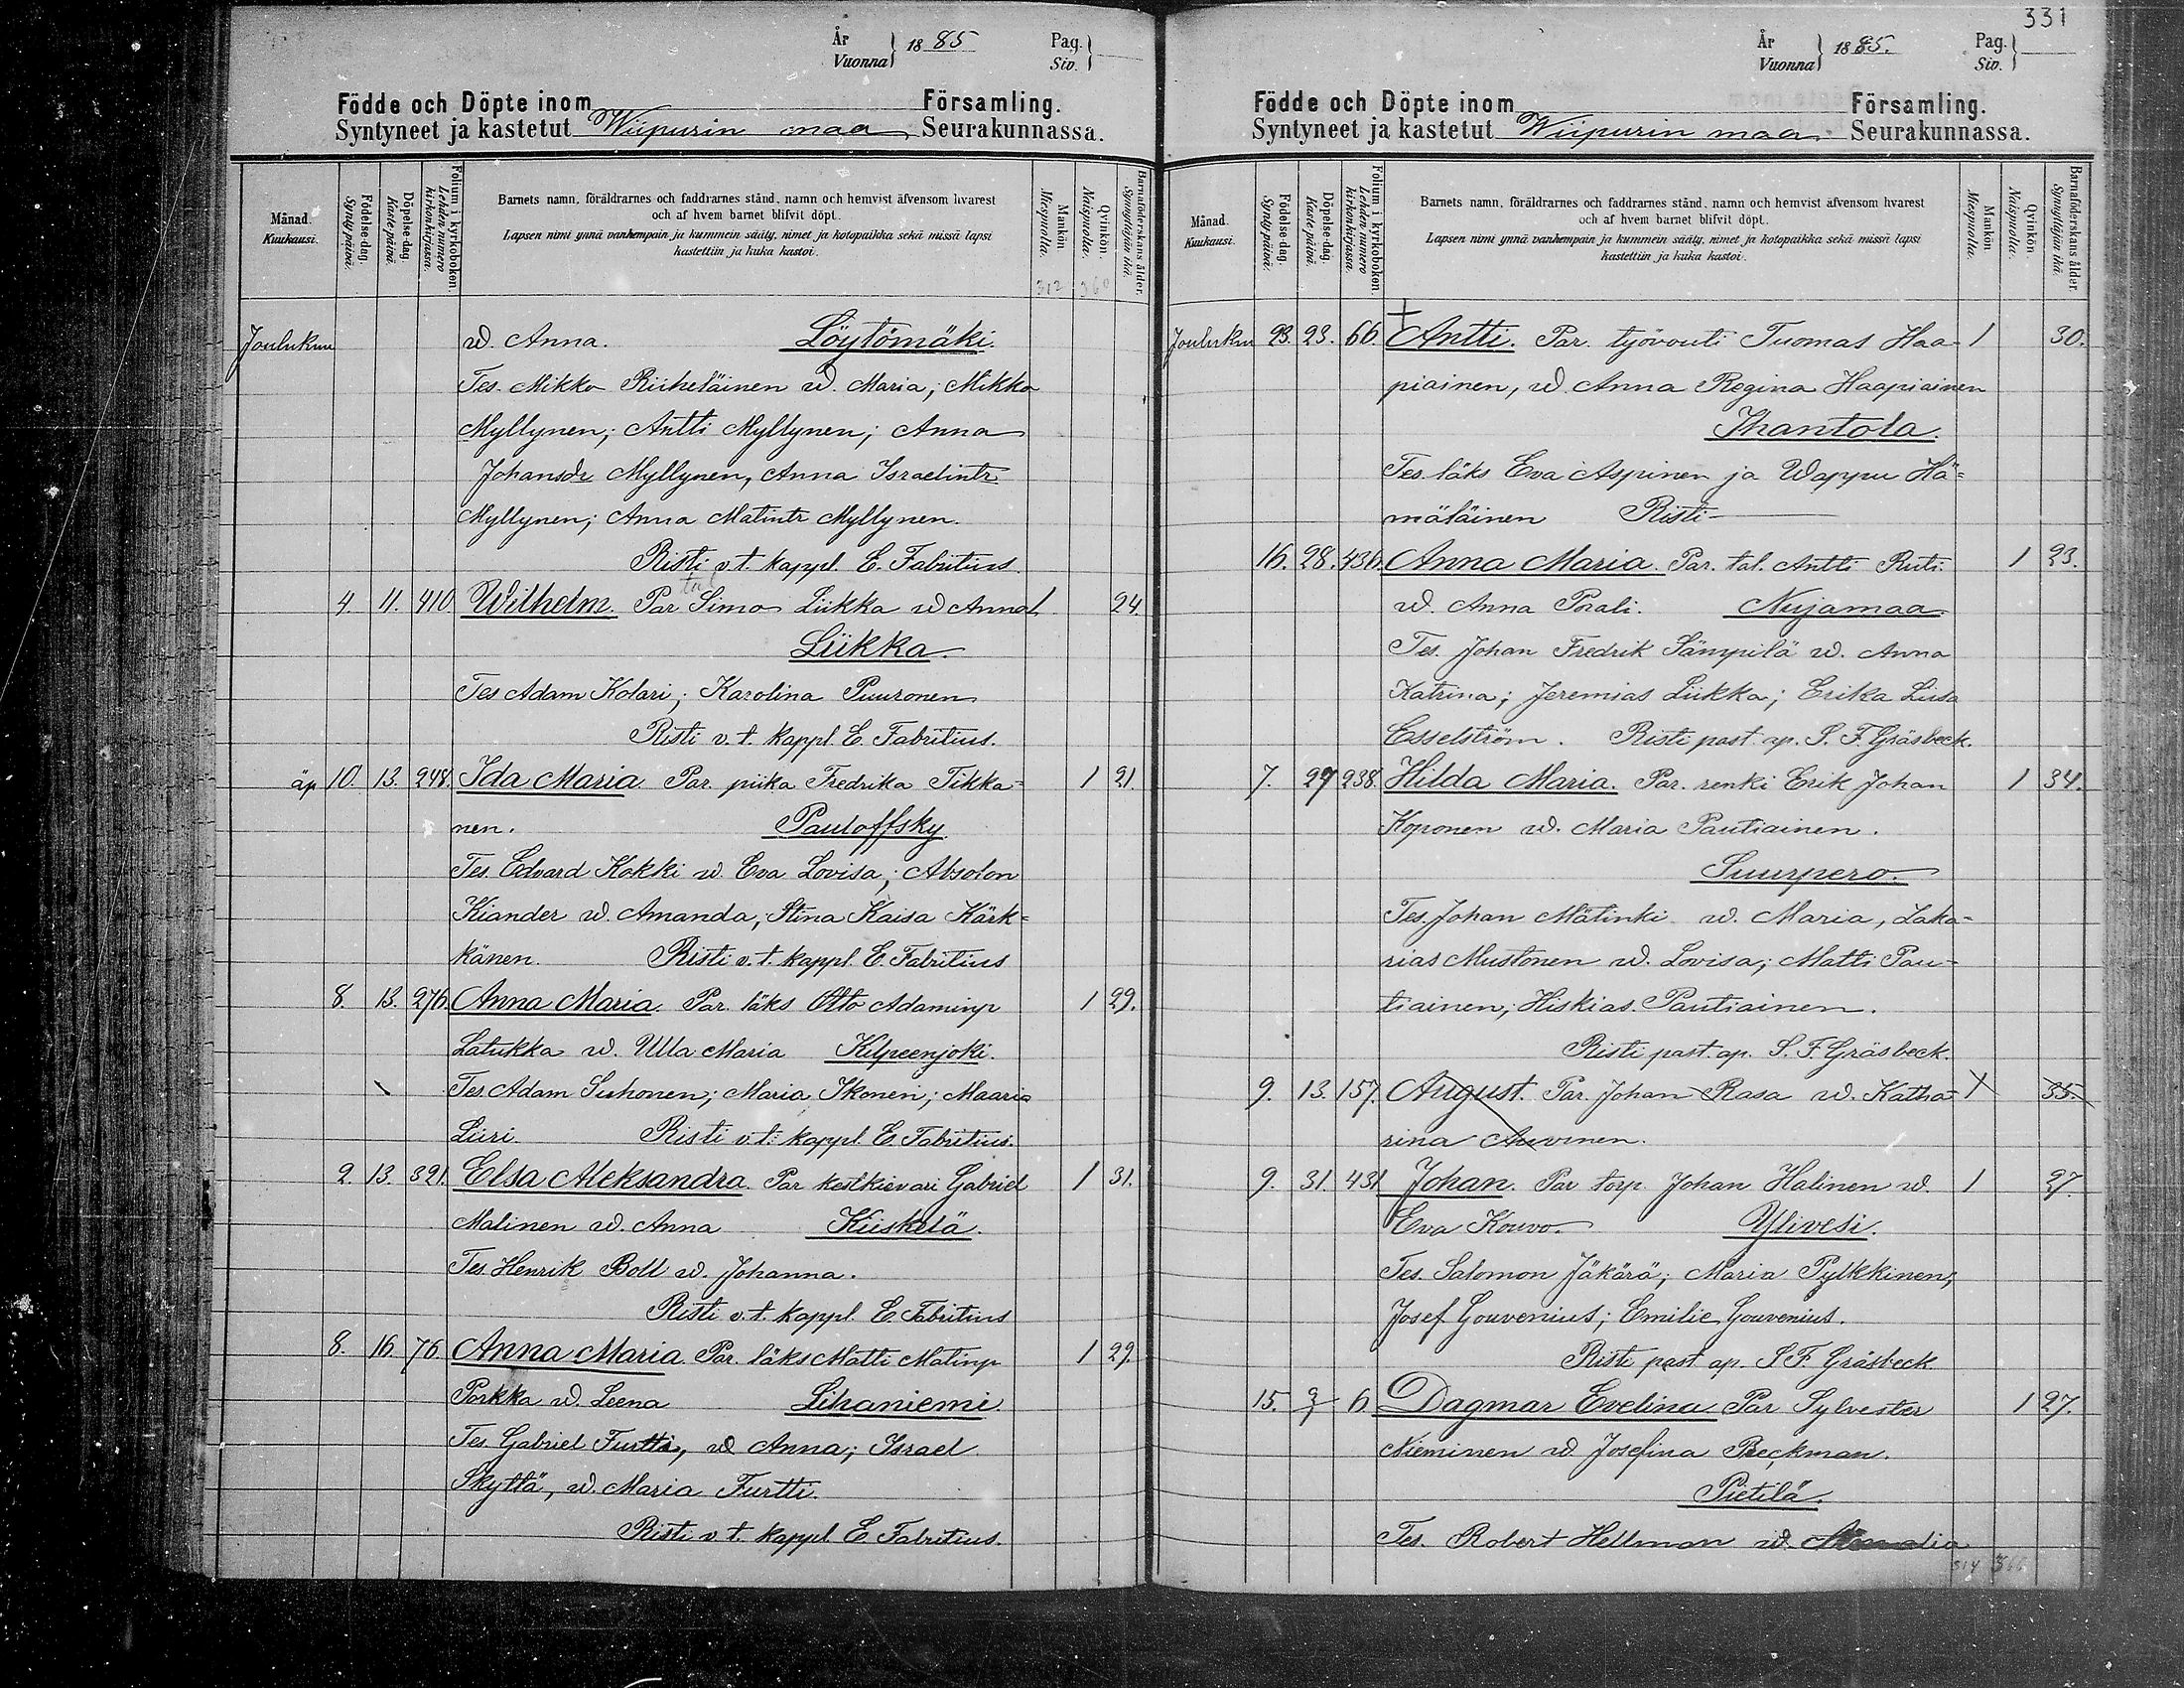 År
Vuonna
1885
Pag.
Siv.
Födde och Döpte inom Församling.
Syntyneet ja kastetut Wiipurin maa Seurakunnassa.
Månad.
Kuukausi.
Födelse-dag.
Synty päivä.
Döpelse-dag.
Kaste päivä.
Folium i kyrkoboken.
Lehden numero kirkonkirjassa.
Barnets namn, föräldrarnes och faddrarnes stånd, namn och hemvist äfvensom hvarest
och af hvem barnet blifvit döpt.
Lapsen nimi ynnä vanhempain ja kummein sääty, nimet ja kotopaikka sekä missä lapsi
kastettiin ja kuka kastoi.
Mankön.
Miespuolia.
Qvinkön.
Naispuolia.
Barnaföderskans ålder.
Synnyttäjän ikä.
312 360
Joulukuu w. Anna. Löytömäki.
Tes. Mikko Riiheläinen w. Maria; Mikko
Myllynen; Antti Myllynen; Anna
Johansdr Myllynen, Anna Israelintr
Myllynen; Anna Matintr Myllynen.
Risti v.t. kappl. E. Fabritius.
tal
4. 11. 410. Wilhelm. Par Simo Liikka w Anna 1. 24.
Liikka.
Tes Adam Kolari; Karolina Puuronen
Risti v.t. kappl. E. Fabritius.
äp 10. 13. 248. Ida Maria. Par. piika Fredrika Tikka- 1 21.
nen. Pauloffsky.
Tes. Edvard Kokki w. Eva Lovisa; Absolon
Kiander w. Amanda, Stina Kaisa Kärk-
känen. Risti v.t. kappl. E. Fabritius
8. 13. 276. Anna Maria. Par. läks Otto Adaminp 1 29.
Latukka w. Ulla Maria Kilpeenjoki.
Tes. Adam Suhonen; Maria Ikonen; Maaria
Liiri. Risti v.t. kappl. E. Fabritius.
2. 13. 321. Elsa Aleksandra. Par kestkievari Gabriel 1 31.
Malinen w. Anna Kiiskilä.
Tes. Henrik Boll w. Johanna.
Risti v.t. kappl. E. Fabritius
8. 16. 76. Anna Maria. Par. läks Matti Matinp 1 29.
Porkka w. Leena Lihaniemi.
Tes. Gabriel Furtti, w Anna; Israel
Skyttä, w. Maria Furtti.
Risti v.t. kappl. E. Fabritius.
331
År
Vuonna
1885.
Pag.
Siv.
Födde och Döpte inom Församling.
Syntyneet ja kastetut Wiipurin maa Seurakunnassa.
Månad.
Kuukausi.
Födelse-dag.
Synty päivä.
Döpelse-dag.
Kaste päivä.
Folium i kyrkoboken.
Lehden numero kirkonkirjassa.
Barnets namn, föräldrarnes och faddrarnes stånd, namn och hemvist äfvensom hvarest
och af hvem barnet blifvit döpt.
Lapsen nimi ynnä vanhempain ja kummein sääty, nimet ja kotopaikka sekä missä lapsi
kastettiin ja kuka kastoi.
Mankön.
Miespuolia.
Qvinkön.
Naispuolia.
Barnaföderskans ålder.
Synnyttäjän ikä.
Joulukuu 23. 23. 66. Antti. Par. työvouti Tuomas Haa- 1 30.
piainen, w. Anna Regina Haapiainen
Ihantola.
Tes. läks Eva Aspinen ja Wappu Hä-
mäläinen Risti
16. 28. 436. Anna Maria. Par. tal. Antti Ruti 1 23.
w. Anna Porali. Nujamaa.
Tes. Johan Fredrik Sämpilä w. Anna
Katrina; Jeremias Liikka; Erika Liisa
Esselström. Risti past. ap. S. F. Gräsbeck.
7. 27 238. Hilda Maria. Par. renki Erik Johan 1 34.
Koponen w. Maria Pautiainen.
Suurpero.
Tes. Johan Mätinki w. Maria, Zaka-
rias Mustonen w. Lovisa; Matti Pau-
tiainen; Hiskias Pautiainen.
Risti past. ap. S. F. Gräsbeck.
9. 13. 157. August. Par. Johan Rasa w. Katha- 1 35.
rina Auvinen.
9. 31. 431 Johan. Par torp. Johan Halinen w. 1 27.
Eva Kouvo. Ylivesi.
Tes. Salomon Jäkärä; Maria Pylkkinen;
Josef Gouvenius; Emilie Gouvenius.
Risti past ap. S F. Gräsbeck.
15. 2/1 6. Dagmar Evelina. Par Sylvester 1 27.
Nieminen w. Josefina Beckman.
Pietilä.
Tes. Robert Hellman w.
314 366